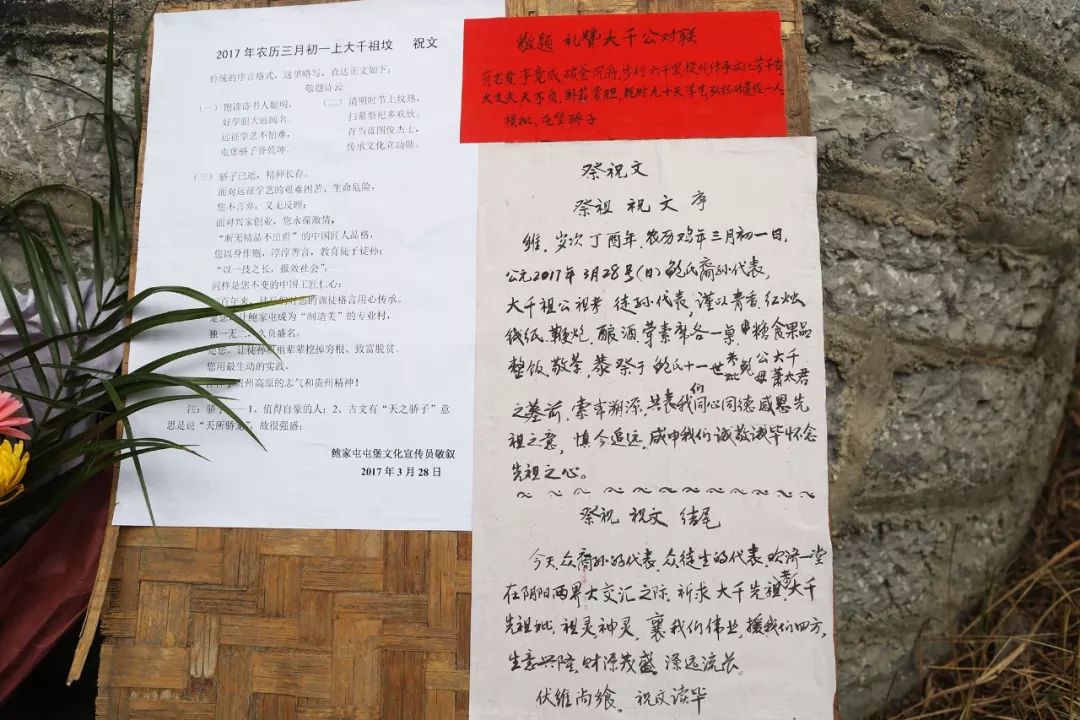 2017年农历三月初一上大千祖坟 祝文
传统的序言格式，这里略写，直达正文如下：
敬题诗云
（一）饱读诗书人聪明， （二）清明时节上坟热，
好学组大远闻名。 扫墓祭祀多欢放。
远征学艺不怕难， 首当蓝图俊杰士，
屯堡骄子誉乾坤。 传承文化立功勋。
（三）骄子已逝，精神长存。
面对远征学艺的艰难困苦、生命危险，
您不言弃，义无反顾；
面对兴家创业，您永葆激情，
“断无精品不出世”的中国匠人品格。
您以身作则，淳淳善言，教育徒子徒孙：
“以一技之长，报效社会”，
同样是您不变的中国工匠仁心；
百年来，您的谆徒格言用心传承。
让鲍家屯成为“制造美”的专业村，
独一无二，久负盛名。
是您，让徒孙祖祖辈辈挖掉穷根、致富脱贫。
您用最生动的实践，
贵州高原的志气和贵州精神！
注：骄子——1、值得自豪的人；2、古文有“天之骄子”意
思是说“天所骄宠”，故很强盛；
鲍家屯屯堡文化宣传员敬叙
2017年3月28日
敬题 礼赞大千公对联
有志者，事竟成，破釜沉舟，步行六千里，授师传承文化芳千古
大丈夫，天不负，卧薪尝胆，耗时九十天学艺，弘扬传一人
横批：屯堡骄子
祭祝文
祭祖 祝文 序
维，岁次丁酉年，农历鸡年三月初一日，
公元2017年3月28号(日)鲍氏裔孙代表，
大千祖公祖考 徒孙代表，谨以青香，红烛
钱纸，鞭炮，酿酒，荤素席各一桌，糖食果品
整饭，敬茶，恭祭于鲍氏十一世考妣鲍公大千母萧太君
之墓前，索本溯源，共表我们同心同德感恩先
祖之意，慎今追远，咸申我们诚敬诚毕怀念
先祖之心。
祭祝 祝文 结尾
今天，众裔孙的代表，众徒生的代表，欢济一堂
在阴阳两界大交汇之际，祈求大千先祖考，大千
先祖妣，祖灵神灵，襄我们伟业，援我们四方，
生意兴隆，财源茂盛，源远流长。
伏维尚飨。祝文读毕